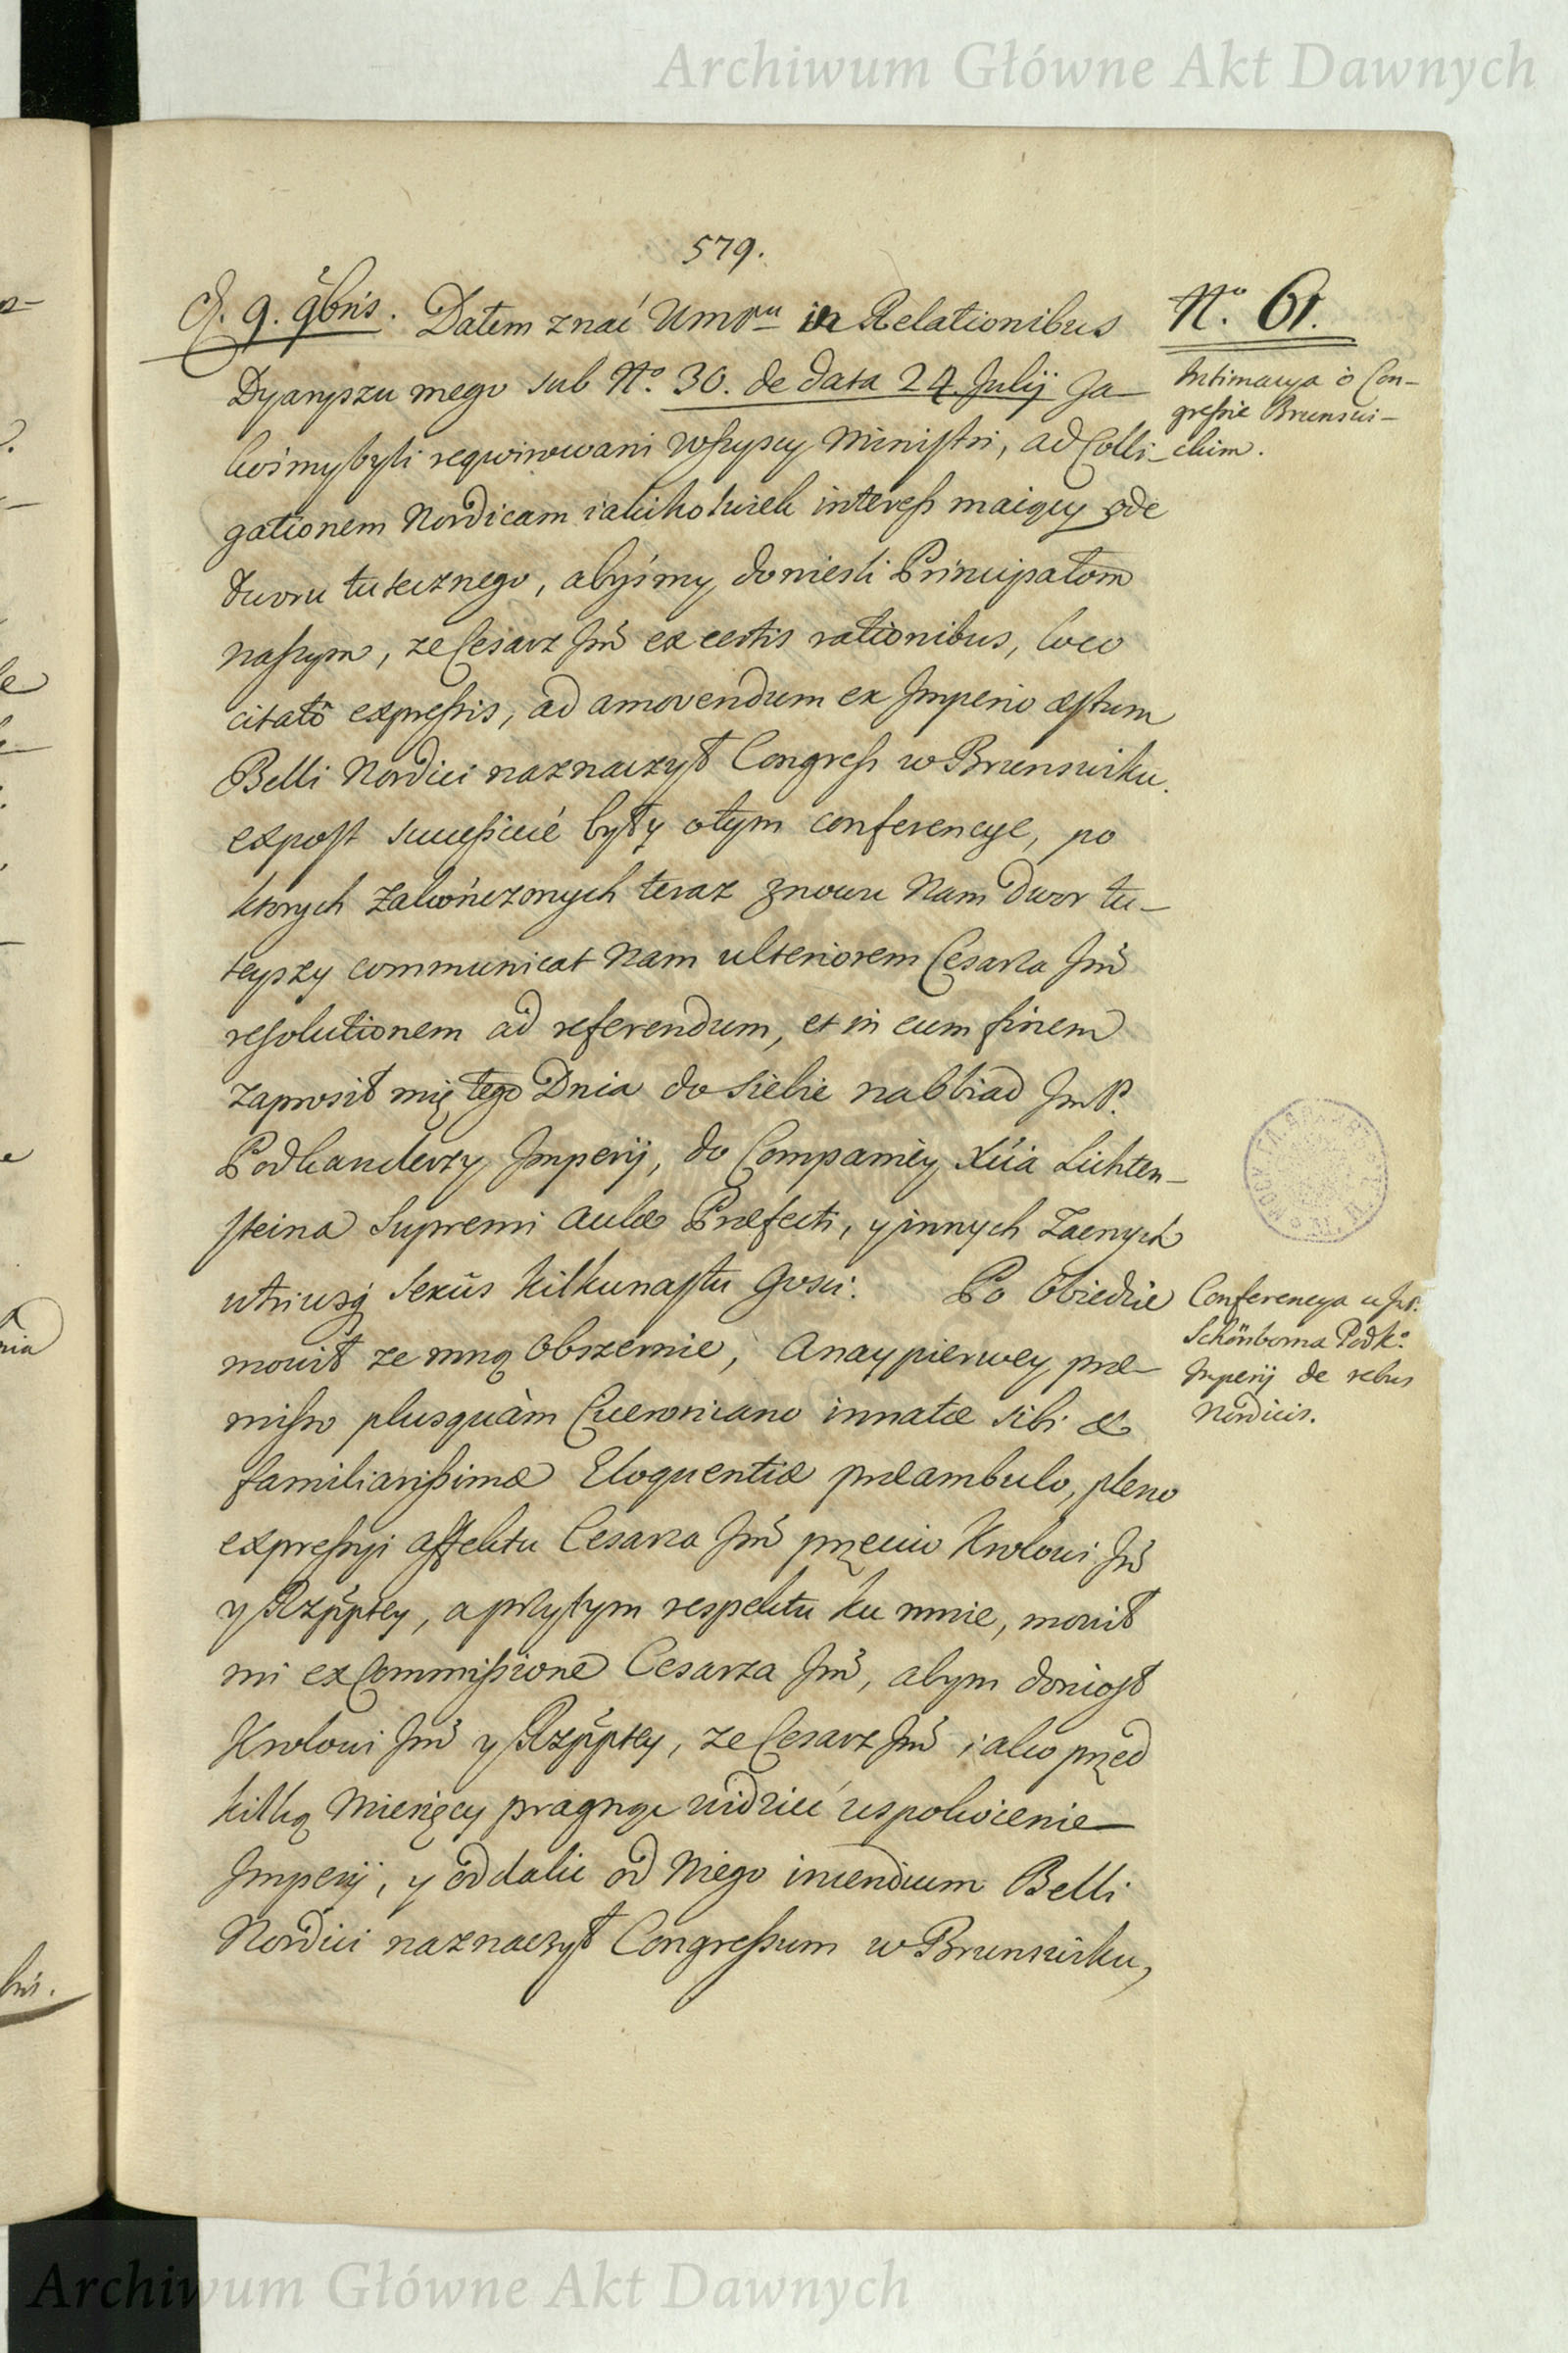 Archiwum Główne Akt Dawnych
579.
D. 9. 9bris. Dałem znać WmPnu in Relationibus
Dyaryszu mego sub No. 30. de data 24 Julij Ja-
kośmy byli reqvirowani wszyscy Ministri, ad Colli-
gationem Nordicam iakikolwiek interess maiący ode
dworu tutecznego, abyśmy donieśli Principałom
naszym, ze Cesarz Jmć ex certis rationibus, loco
citatô expressis, ad amovendum ex Imperio æstum
Belli Nordici naznaczył Congress w Brunświku.
expost successivè były otym conferencye, po
ktorych zakończonych teraz znowu Nam Dwor tu-
teyszy communicat nam ulteriorem Cesarza Jmć
resolutionem ad referendum, et in eum finem
zaprosił mię tego Dnia do siebie na Obiad JmP.
Podkanclerzy Imperij, do Companiey Xcia Lichten-
steina Supremi Aulæ Præfecti, y innych zacnych
utriusq Sexûs kilkunastu Gosci. Po Obiedzie
mowił ze mną obszernie, Anaypierwey præ-
misso plusquàm Ciceroniano innatæ sibi &
familiarissimæ Eloquentiæ præambulo, pleno
expressyi affektu Cesarza Jmć przeciw Krolowi Jmć
y Rzpptey, aprzytym respektu ku mnie, mowił
mi ex Commissione Cesarza Jmć, abym doniosł
Krolowi Jmć y Rzpptey, ze Cesarz Jmć iako przed
kilką Miesięcy pragnąc widzieć uspokoienie
Imperij, y oddalic od Niego incendium Belli
Nordici naznaczył Congressum w Brunświku,
No. 61.
Intimacya ò Con-
gressie Brunswi-
ckim.
Conferencya u JP.
Schönborna Podk.
Imperij de rebus
Nordicis.
Archiwum Główne Akt Dawnych